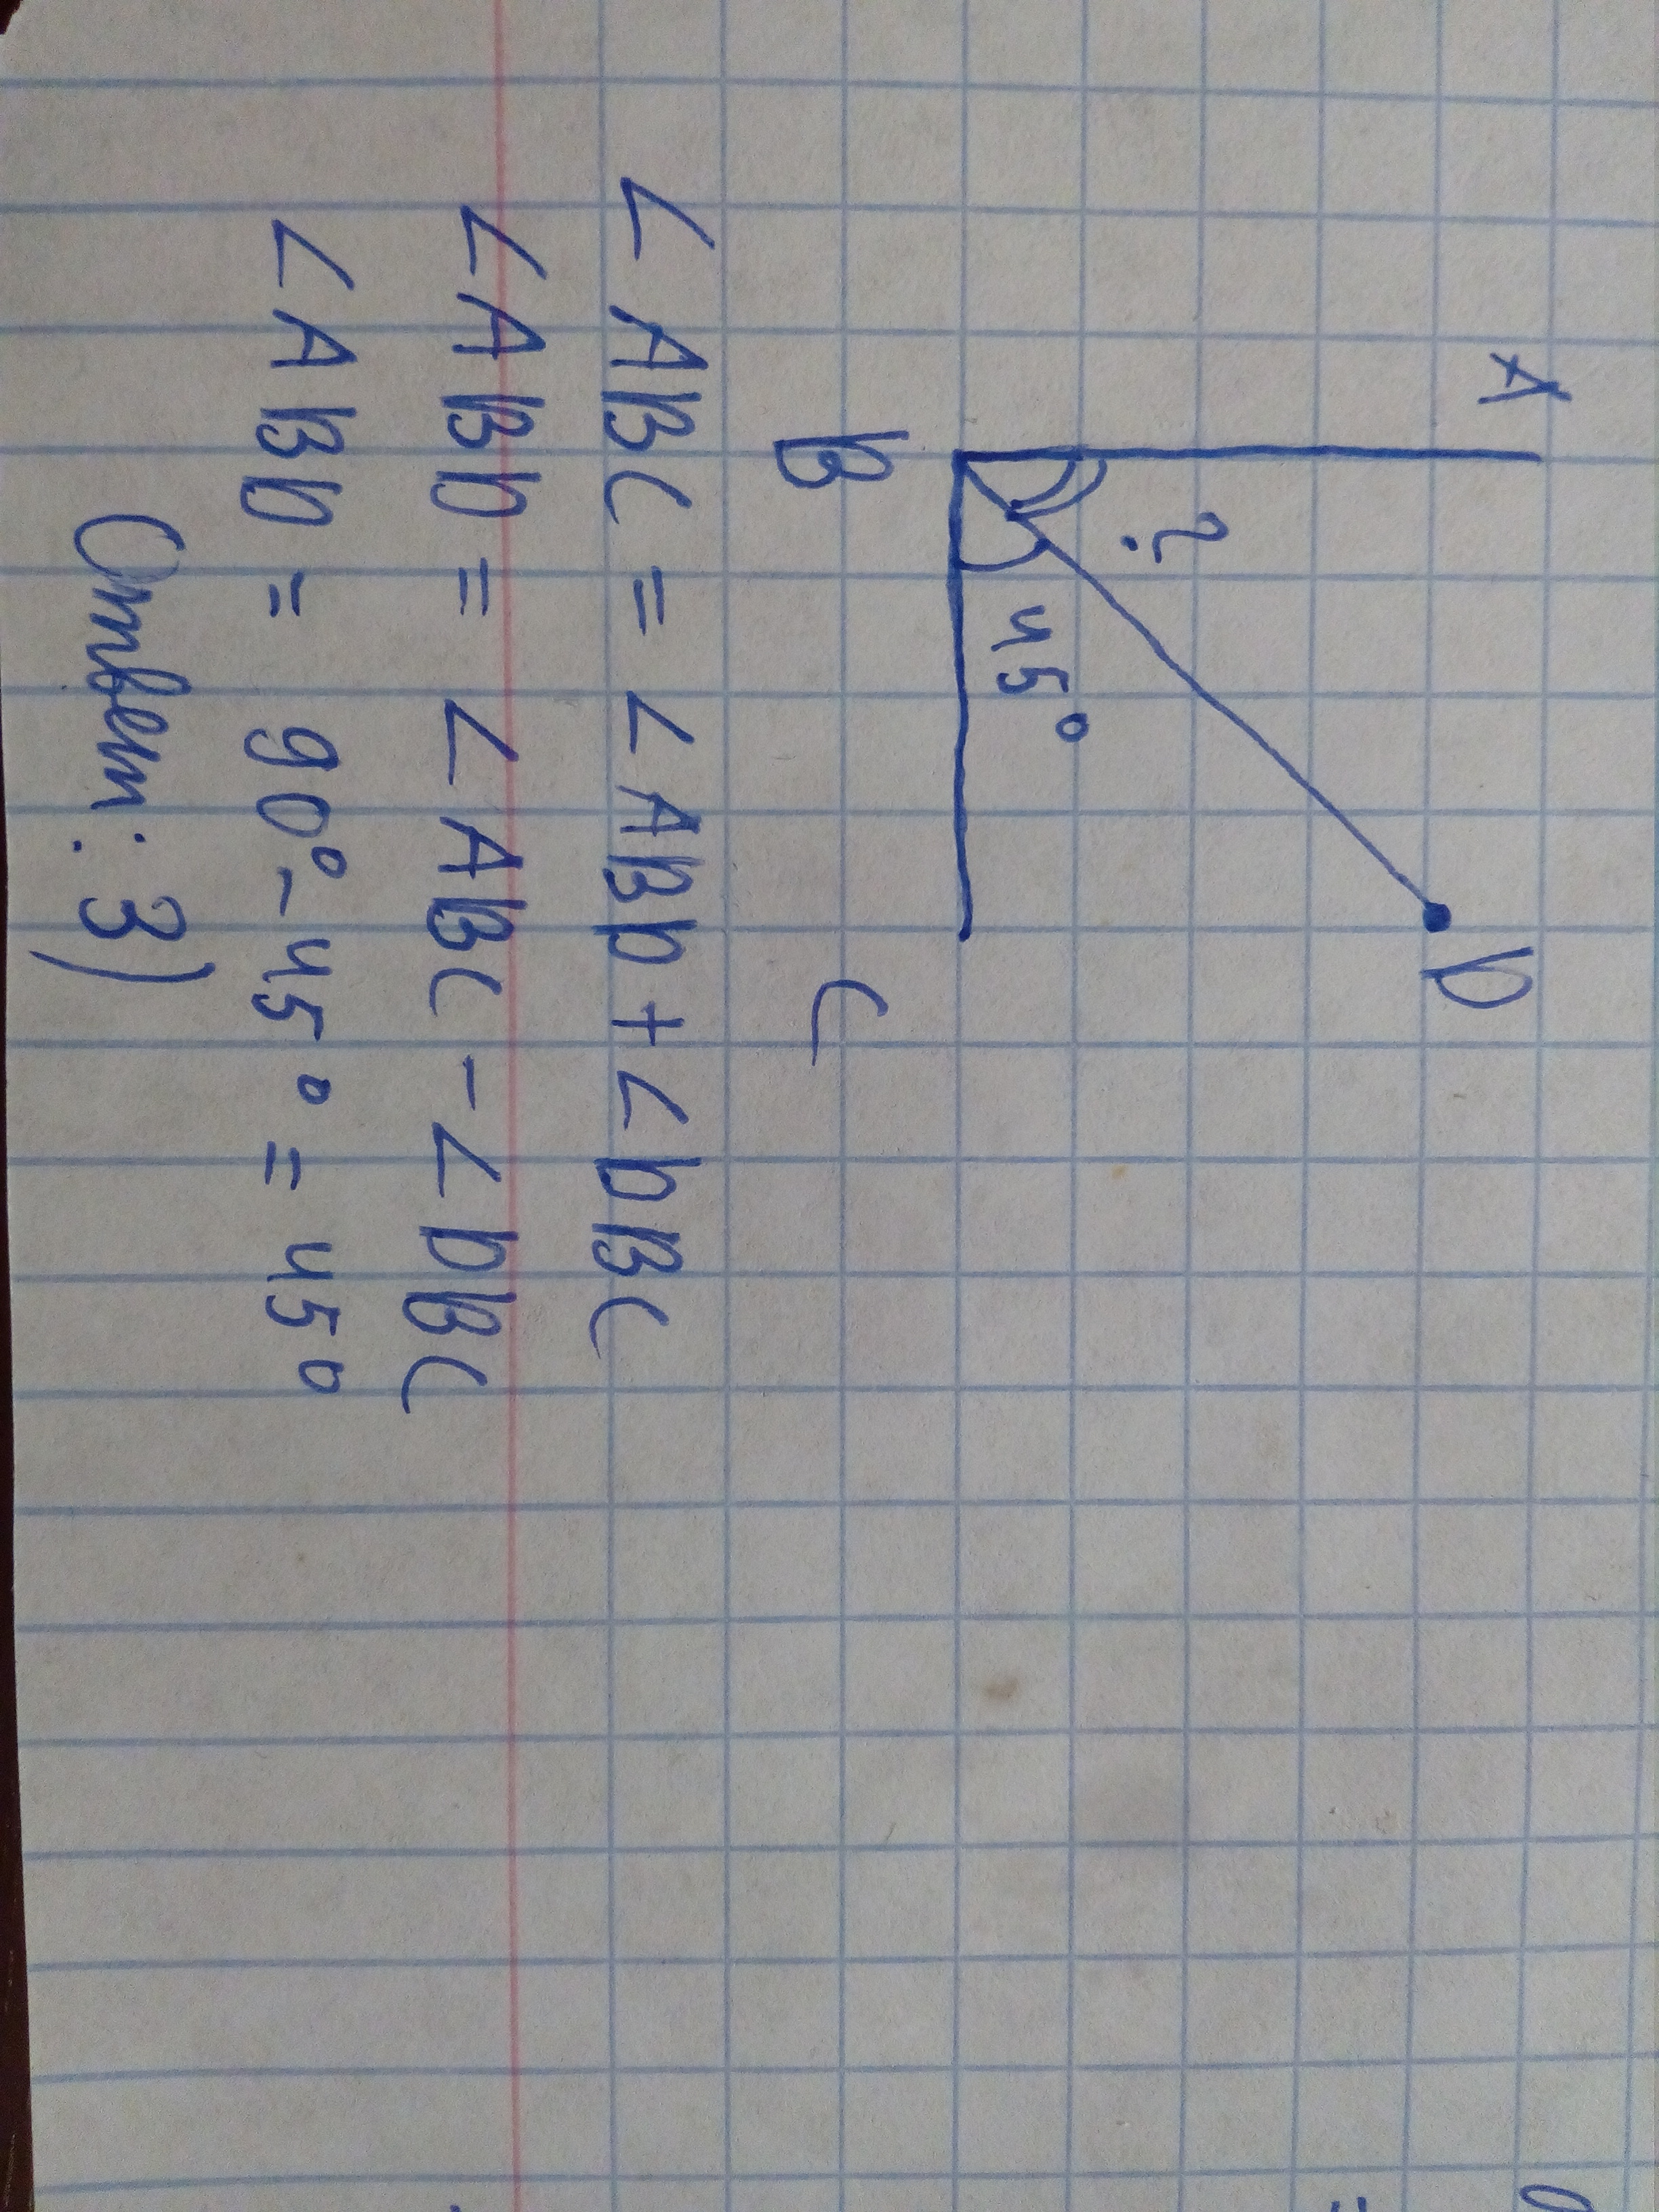 A
D
?
45°
B
C
∠ABC = ∠ABD + ∠DBC
∠ABD = ∠ABC - ∠DBC
∠ABD = 90° - 45° = 45°
Ответ: 3)